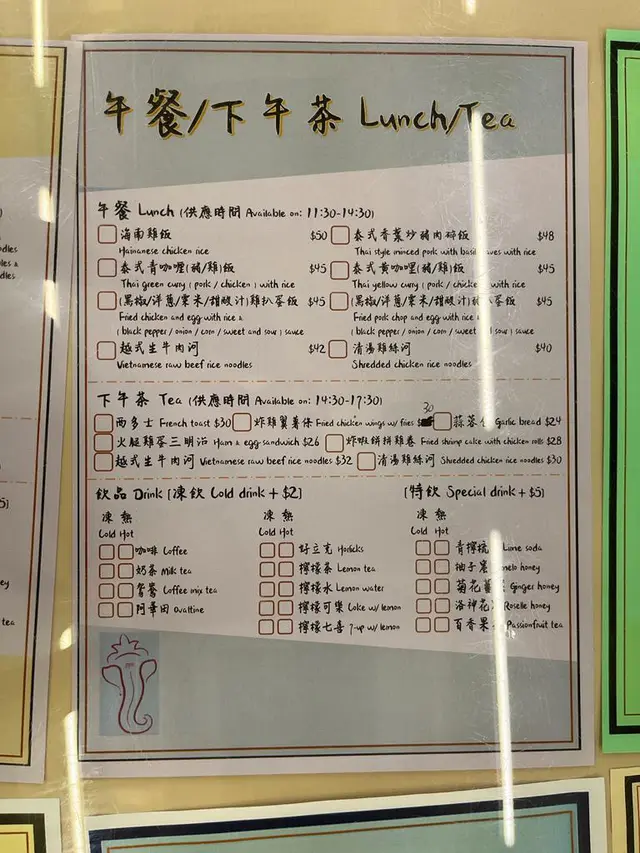 午餐/下午茶 Lunch/Tea
午餐 Lunch (供應時間 Available on: 11:30-14:30)
海南雞飯 $50
Hainanese chicken rice
泰式香葉炒豬肉碎飯 $48
Thai style minced pork with basil leaves with rice
泰式青咖喱(豬/雞)飯 $45
Thai green curry (pork / chicken) with rice
泰式黃咖喱(豬/雞)飯 $45
Thai yellow curry (pork / chicken) with rice
(黑椒/洋蔥/粟米/甜酸汁)雞扒蛋飯 $45
Fried chicken and egg with rice &
(black pepper / onion / corn / sweet and sour) sauce
(黑椒/洋蔥/粟米/甜酸汁)豬扒蛋飯 $45
Fried pork chop and egg with rice &
(black pepper / onion / corn / sweet and sour) sauce
越式生牛肉河 $42
Vietnamese raw beef rice noodles
清湯雞絲河 $40
Shredded chicken rice noodles
下午茶 Tea (供應時間 Available on: 14:30-17:30)
西多士 French toast $30
炸雞翼薯條 Fried chicken wings w/ fries $ 30
蒜蓉包 Garlic bread $24
火腿雞蛋三明治 Ham & egg sandwich $26
炸蝦餅拼雞卷 Fried shrimp cake with chicken rolls $28
越式生牛肉河 Vietnamese raw beef rice noodles $32
清湯雞絲河 Shredded chicken rice noodles $30
飲品 Drink [凍飲 Cold drink + $2]
凍 熱
Cold Hot
咖啡 Coffee
奶茶 Milk tea
鴛鴦 Coffee mix tea
阿華田 Ovaltine
凍 熱
Cold Hot
好立克 Horlicks
檸檬茶 Lemon tea
檸檬水 Lemon water
檸檬可樂 Coke w/ lemon
檸檬七喜 7-up w/ lemon
[特飲 Special drink + $5]
凍 熱
Cold Hot
青檸梳 Lime soda
柚子蜜 honey
菊花薑 Ginger honey
洛神花 Roselle honey
百香果 Passionfruit tea